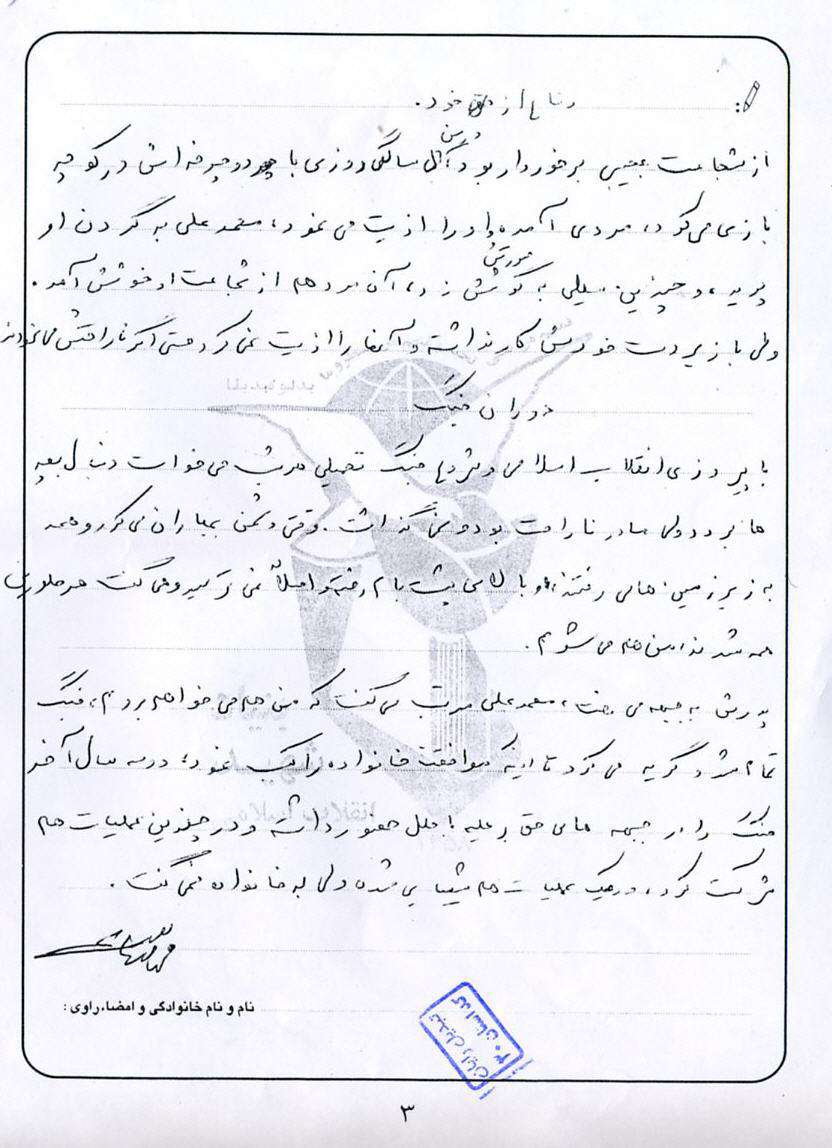 دفاع از حق خود.
از شجاعت عجیبی برخوردار بود، در سن سالگی روزی با دوچرخه‌اش در کوچه
بازی می‌کرد، مردی آمده و او را اذیت می نمود، محمد علی به گردن او
پرید، و چندین سیلی به گوش صورتش زد، آن مرد هم از شجاعت او خوشش آمد.
ولی با زیر دست خودش کار نداشته و آنها را اذیت نمی کرد حتی اگر ناراحتش می نمودند
دوران جنگ
با پیروزی انقلاب اسلامی و شروع جنگ تحمیلی مرتب می خواست دنبال بچه
ها برود ولی مادر ناراحت بود و نمی گذاشت. وقتی دشمن بمباران می کرد و همه
به زیرزمین های رفتند، او بالای پشت بام رفته و اصلاً نمی ترسید و می گفت هر طوری
همه شدند من هم می شوم.
پدرش به جبهه می رفت، محمد علی مرتب می گفت که من هم می خواهم بروم، جنگ
تمام شد گریه می کرد تا اینکه موافقت خانواده را کسب نمود، در سه سال آخر
جنگ را در جبهه های حق بر علیه باطل حضور داشته و در چندین عملیات هم
شرکت کرد، در یک عملیات هم شیمیایی شده ولی به خانواده نمی گفت.
نام و نام خانوادگی و امضاء راوی :
۳